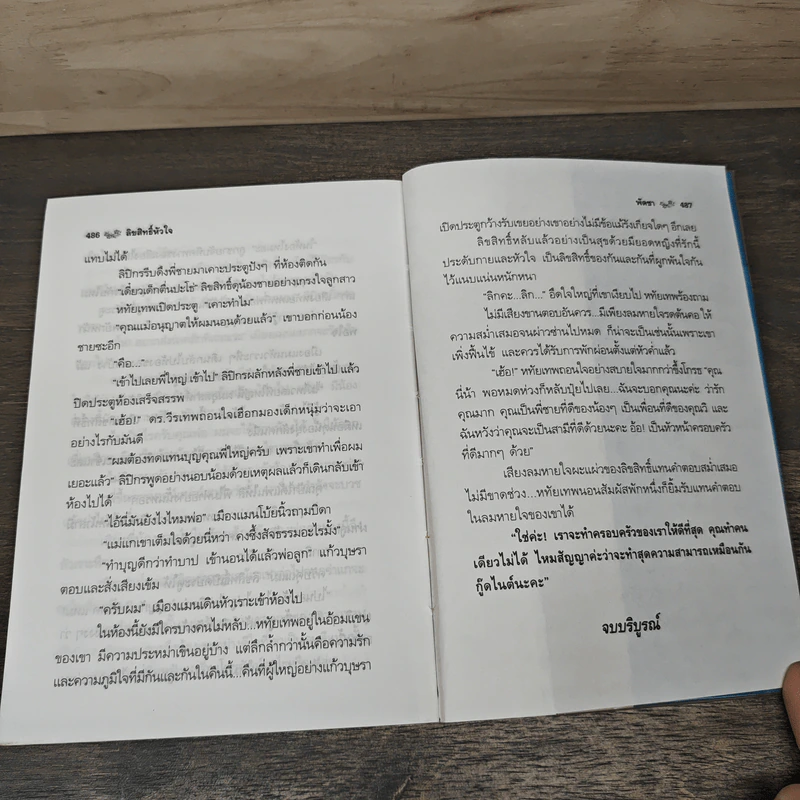 486 ลิขสิทธิ์หัวใจ
แทบไม่ได้
ลิปิกรรีบดึงพี่ชายมาเคาะประตูปังๆ ที่ห้องติดกัน
"เดี๋ยวเด็กตื่นปะโธ่" ลิขสิทธิ์ดุน้องชายอย่างเกรงใจลูกสาว
หทัยเทพเปิดประตู "เคาะทำไม"
"คุณแม่อนุญาตให้ผมนอนด้วยแล้ว" เขาบอกก่อนน้อง
ชายซะอีก
"คือ..."
"เข้าไปเลยพี่ใหญ่ เข้าไป" ลิปิกรผลักหลังพี่ชายเข้าไป แล้ว
ปิดประตูห้องเสร็จสรรพ
"เฮ้อ!" ดร.วีรเทพถอนใจเฮือกมองเด็กหนุ่มว่าจะเอา
อย่างไรกับมันดี
"ผมต้องทดแทนบุญคุณพี่ใหญ่ครับ เพราะเขาทำเพื่อผม
เยอะแล้ว" ลิปิกรพูดอย่างนอบน้อมด้วยเหตุผลแล้วก็เดินกลับเข้า
ห้องไปได้
"ไอ้นี่มันยังไงไหมพ่อ" เมืองแมนโบ้ยนิ้วถามบิดา
"แม่แกเขาเต็มใจด้วยนี่หว่า คงซึ้งสัจธรรมอะไรมั้ง"
"ทำบุญดีกว่าทำบาป เข้านอนได้แล้วพ่อลูก" แก้วบุษรา
ตอบและสั่งเสียงเข้ม
"ครับผม" เมืองแมนเดินหัวเราะเข้าห้องไป
ในห้องนี้ยังมีใครบางคนไม่หลับ...หทัยเทพอยู่ในอ้อมแขน
ของเขา มีความประหม่าเขินอยู่บ้าง แต่ลึกล้ำกว่านั้นคือความรัก
และความภูมิใจที่มีกันและกันในคืนนี้...คืนที่ผู้ใหญ่อย่างแก้วบุษรา
พัดชา 487
เปิดประตูกว้างรับเขยอย่างเขาอย่างไม่มีข้อแม้รังเกียจใดๆ อีกเลย
ลิขสิทธิ์หลับแล้วอย่างเป็นสุขด้วยมียอดหญิงที่รักนี้
ประดับกายและหัวใจ เป็นลิขสิทธิ์ของกันและกันที่ผูกพันใจกัน
ไว้แนบแน่นหนักหนา
"ลิกคะ...ลิก..." อึดใจใหญ่ที่เขาเงียบไป หทัยเทพร้องถาม
ไม่มีเสียงขานตอบอันควร..มีเพียงลมหายใจรดต้นคอ ให้
ความสม่ำเสมอจนผ่าวซ่านไปหมด ก็น่าจะเป็นเช่นนั้นเพราะเขา
เพิ่งฟื้นไข้ และควรได้รับการพักผ่อนตั้งแต่หัวค่ำแล้ว
"เฮ้อ!" หทัยเทพถอนใจอย่างสบายใจมากกว่าขึ้งโกรธ "คุณ
นี่น้า พอหมดห่วงก็หลับปุ๋ยไปเลย...ฉันจะบอกคุณนะคะ ว่ารัก
คุณมาก คุณเป็นพี่ชายที่ดีของน้องๆ เป็นเพื่อนที่ดีของคุณวิ และ
ฉันหวังว่าคุณจะเป็นสามีที่ดีด้วยนะคะ อ้อ! เป็นหัวหน้าครอบครัว
ที่ดีมากๆ ด้วย"
เสียงลมหายใจผะแผ่วของลิขสิทธิ์แทนคำตอบสม่ำเสมอ
ไม่มีขาดช่วง...หทัยเทพนอนสัมผัสพักหนึ่งก็ยิ้มรับแทนคำตอบ
ในลมหายใจของเขาได้
"ใช่ค่ะ! เราจะทำครอบครัวของเราให้ดีที่สุด คุณทำคน
เดียวไม่ได้ ไหมสัญญาค่ะว่าจะทำสุดความสามารถเหมือนกัน
กู๊ดไนต์นะคะ"
จบบริบูรณ์